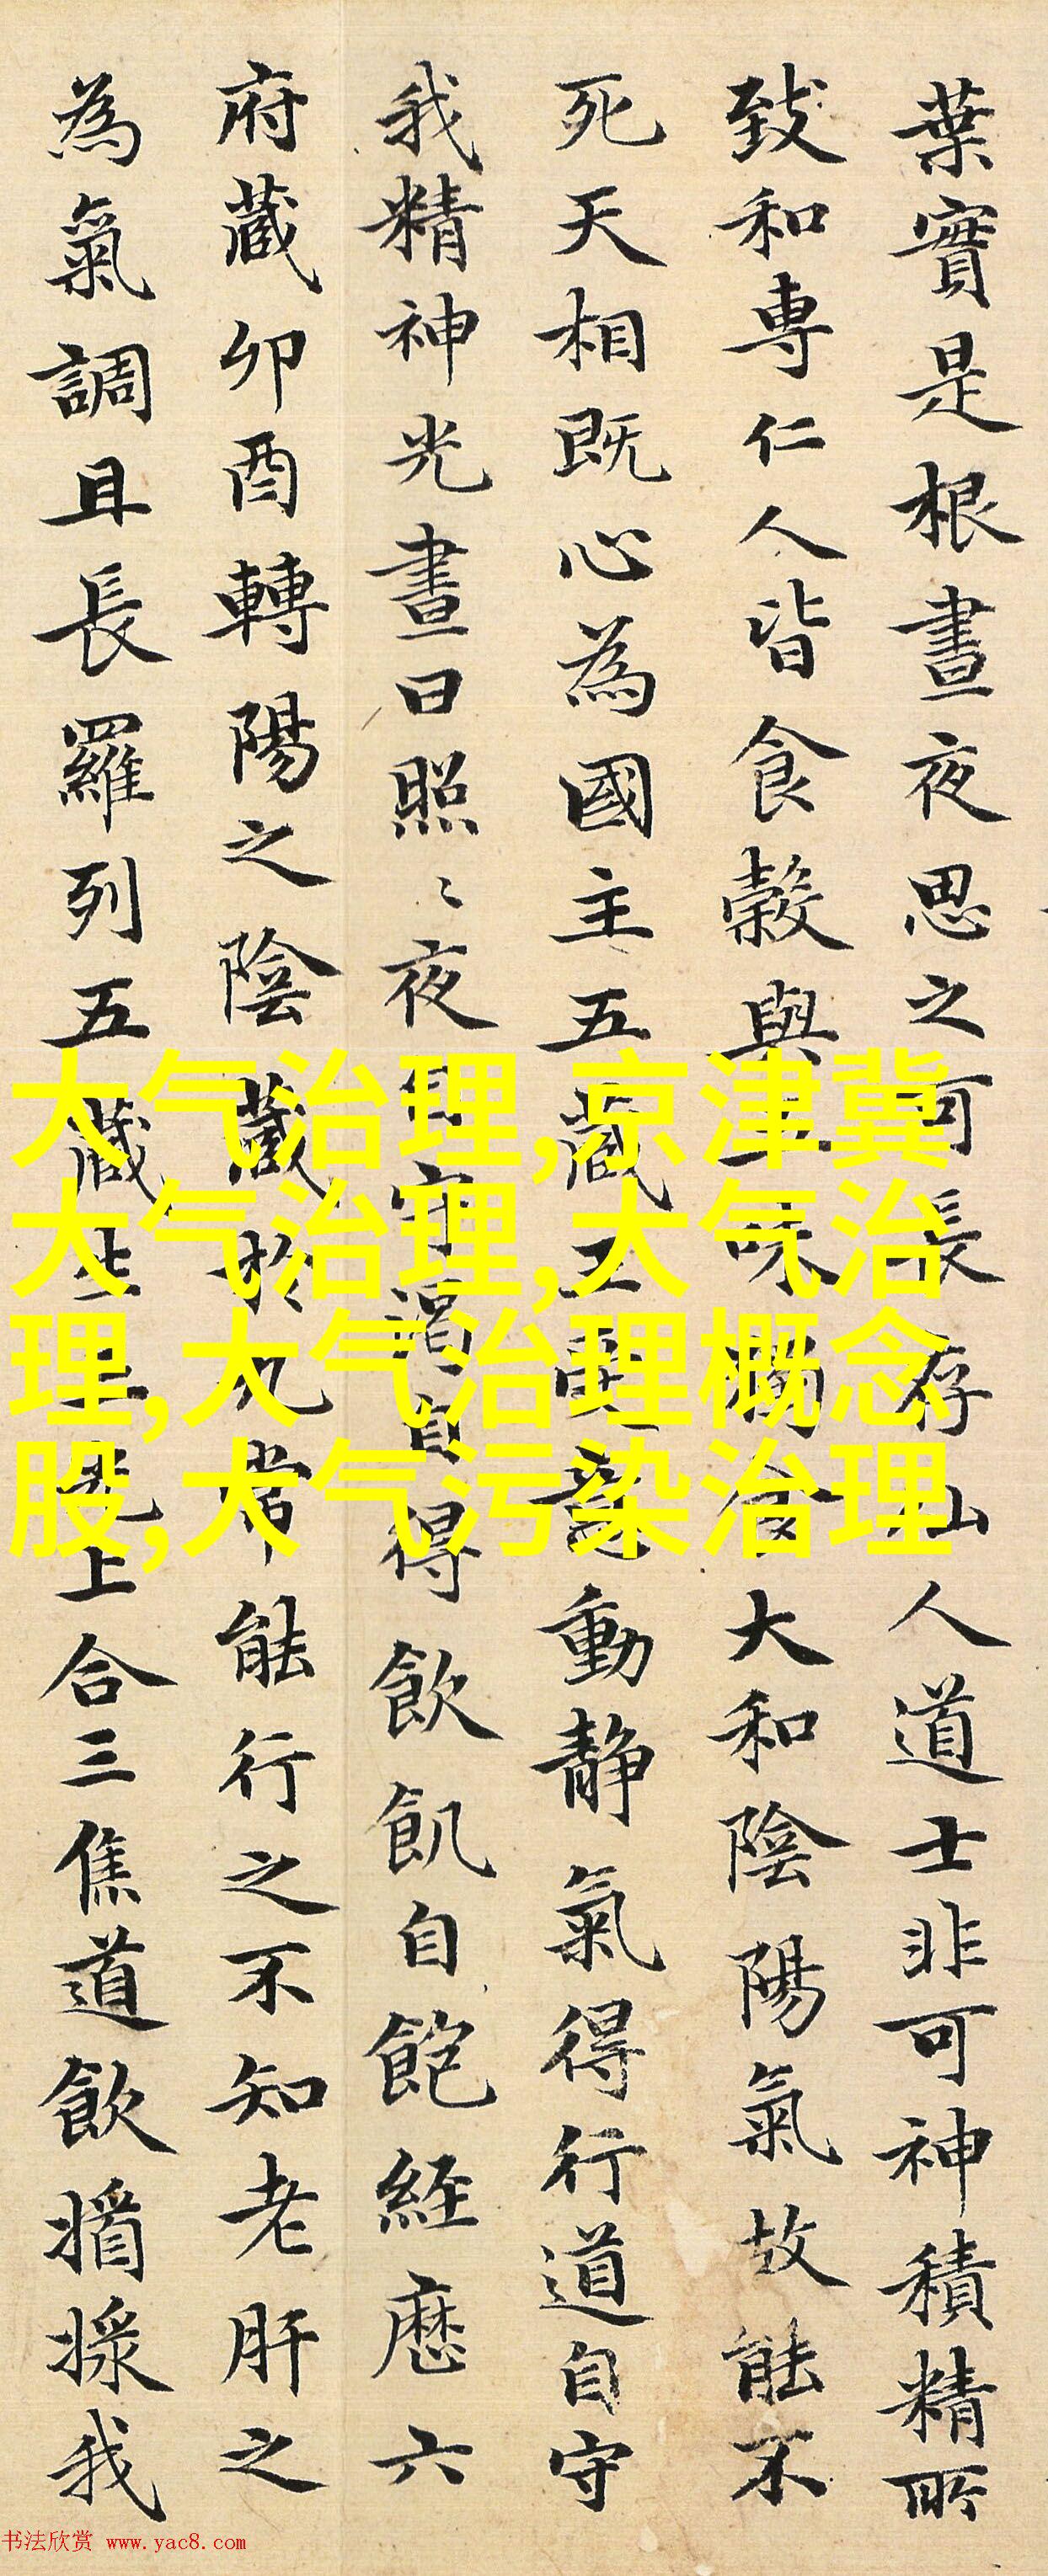 葉實是根晝夜思之可長存仙人道士非可神積精所
致和專仁人皆食穀與五味獨食大和陰陽氣故能不
死天相既心為國主五藏王受意動静氣得行道自守
我精神光晝日照〻夜自守渴自得飲飢自飽經歷六
府藏卯酉轉陽之陰藏於九常能行之不知老肝之
為氣調且長羅列五藏生三光上合三焦道飲我
大气治理,京津冀
大气治理,大气治
理,大气治理概念
股,大气污染治理
书法欣赏 www.yac8.com